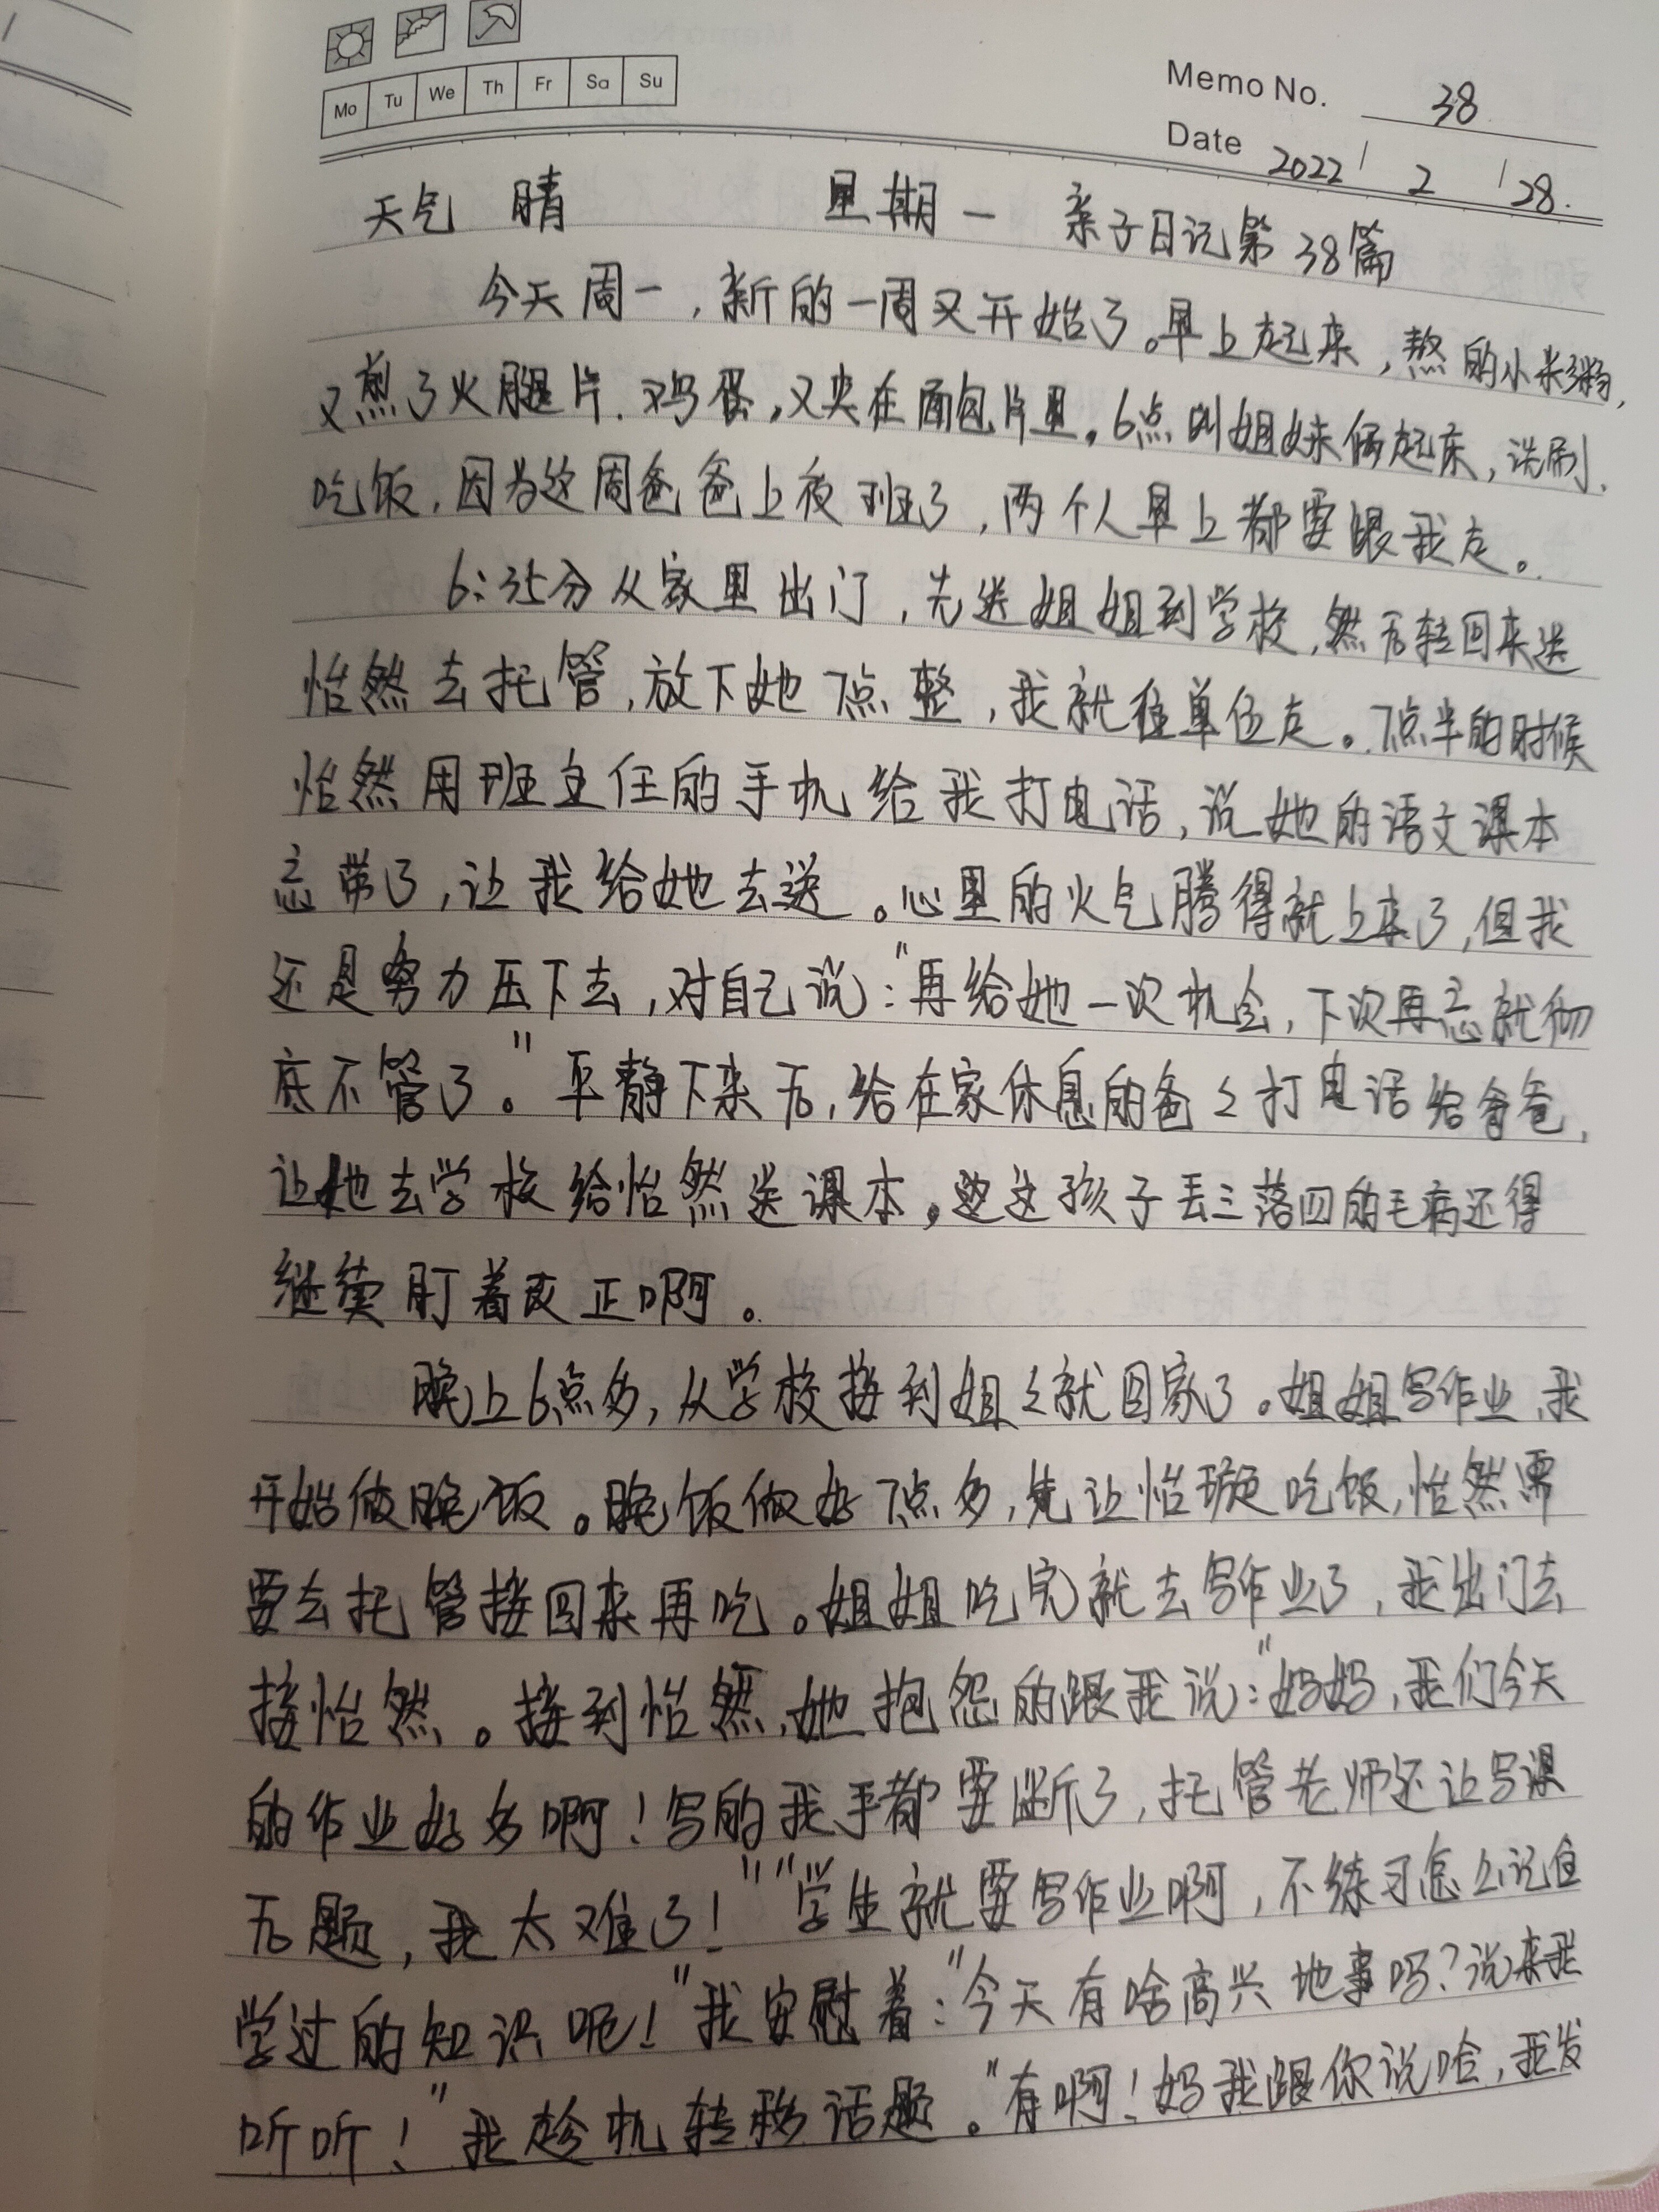 Mo Tu We Th Fr Sa Su
Memo No. 38
Date 2022 / 2 / 28.
天气 晴 星期一 亲子日记第38篇
今天周一，新的一周又开始了。早上起来，熬的小米粥，
又煎了火腿片、鸡蛋，又夹在面包片里。6点叫姐妹俩起床，洗刷、
吃饭，因为这周爸爸上夜班了，两个人早上都要跟我走。
6:35分从家里出门，先送姐姐到学校，然后转回来送
怡然去托管，放下她7点整，我就往单位走。7点半的时候
怡然用班主任的手机给我打电话，说她的语文课本
忘带了，让我给她去送。心里的火气腾得就上来了，但我
还是努力压下去，对自己说："再给她一次机会，下次再忘就彻
底不管了。"平静下来后，给在家休息的爸々打电话给爸爸，
让他去学校给怡然送课本。这孩子丢三落四的毛病还得
继续盯着改正啊。
晚上6点多，从学校接到姐々就回家了。姐姐写作业，我
开始做晚饭。晚饭做好7点多，先让怡璇吃饭，怡然需
要去托管接回来再吃。姐姐吃完就去写作业了，我出门去
接怡然。接到怡然，她抱怨的跟我说："妈妈，我们今天
的作业好多啊！写的我手都要断了，托管老师还让写课
后题，我太难了！""学生就要写作业啊，不练习怎么记住
学过的知识呢！"我安慰着："今天有啥高兴地事吗？说来我
听听！"我趁机转移话题。"有啊！妈我跟你说哈，我发